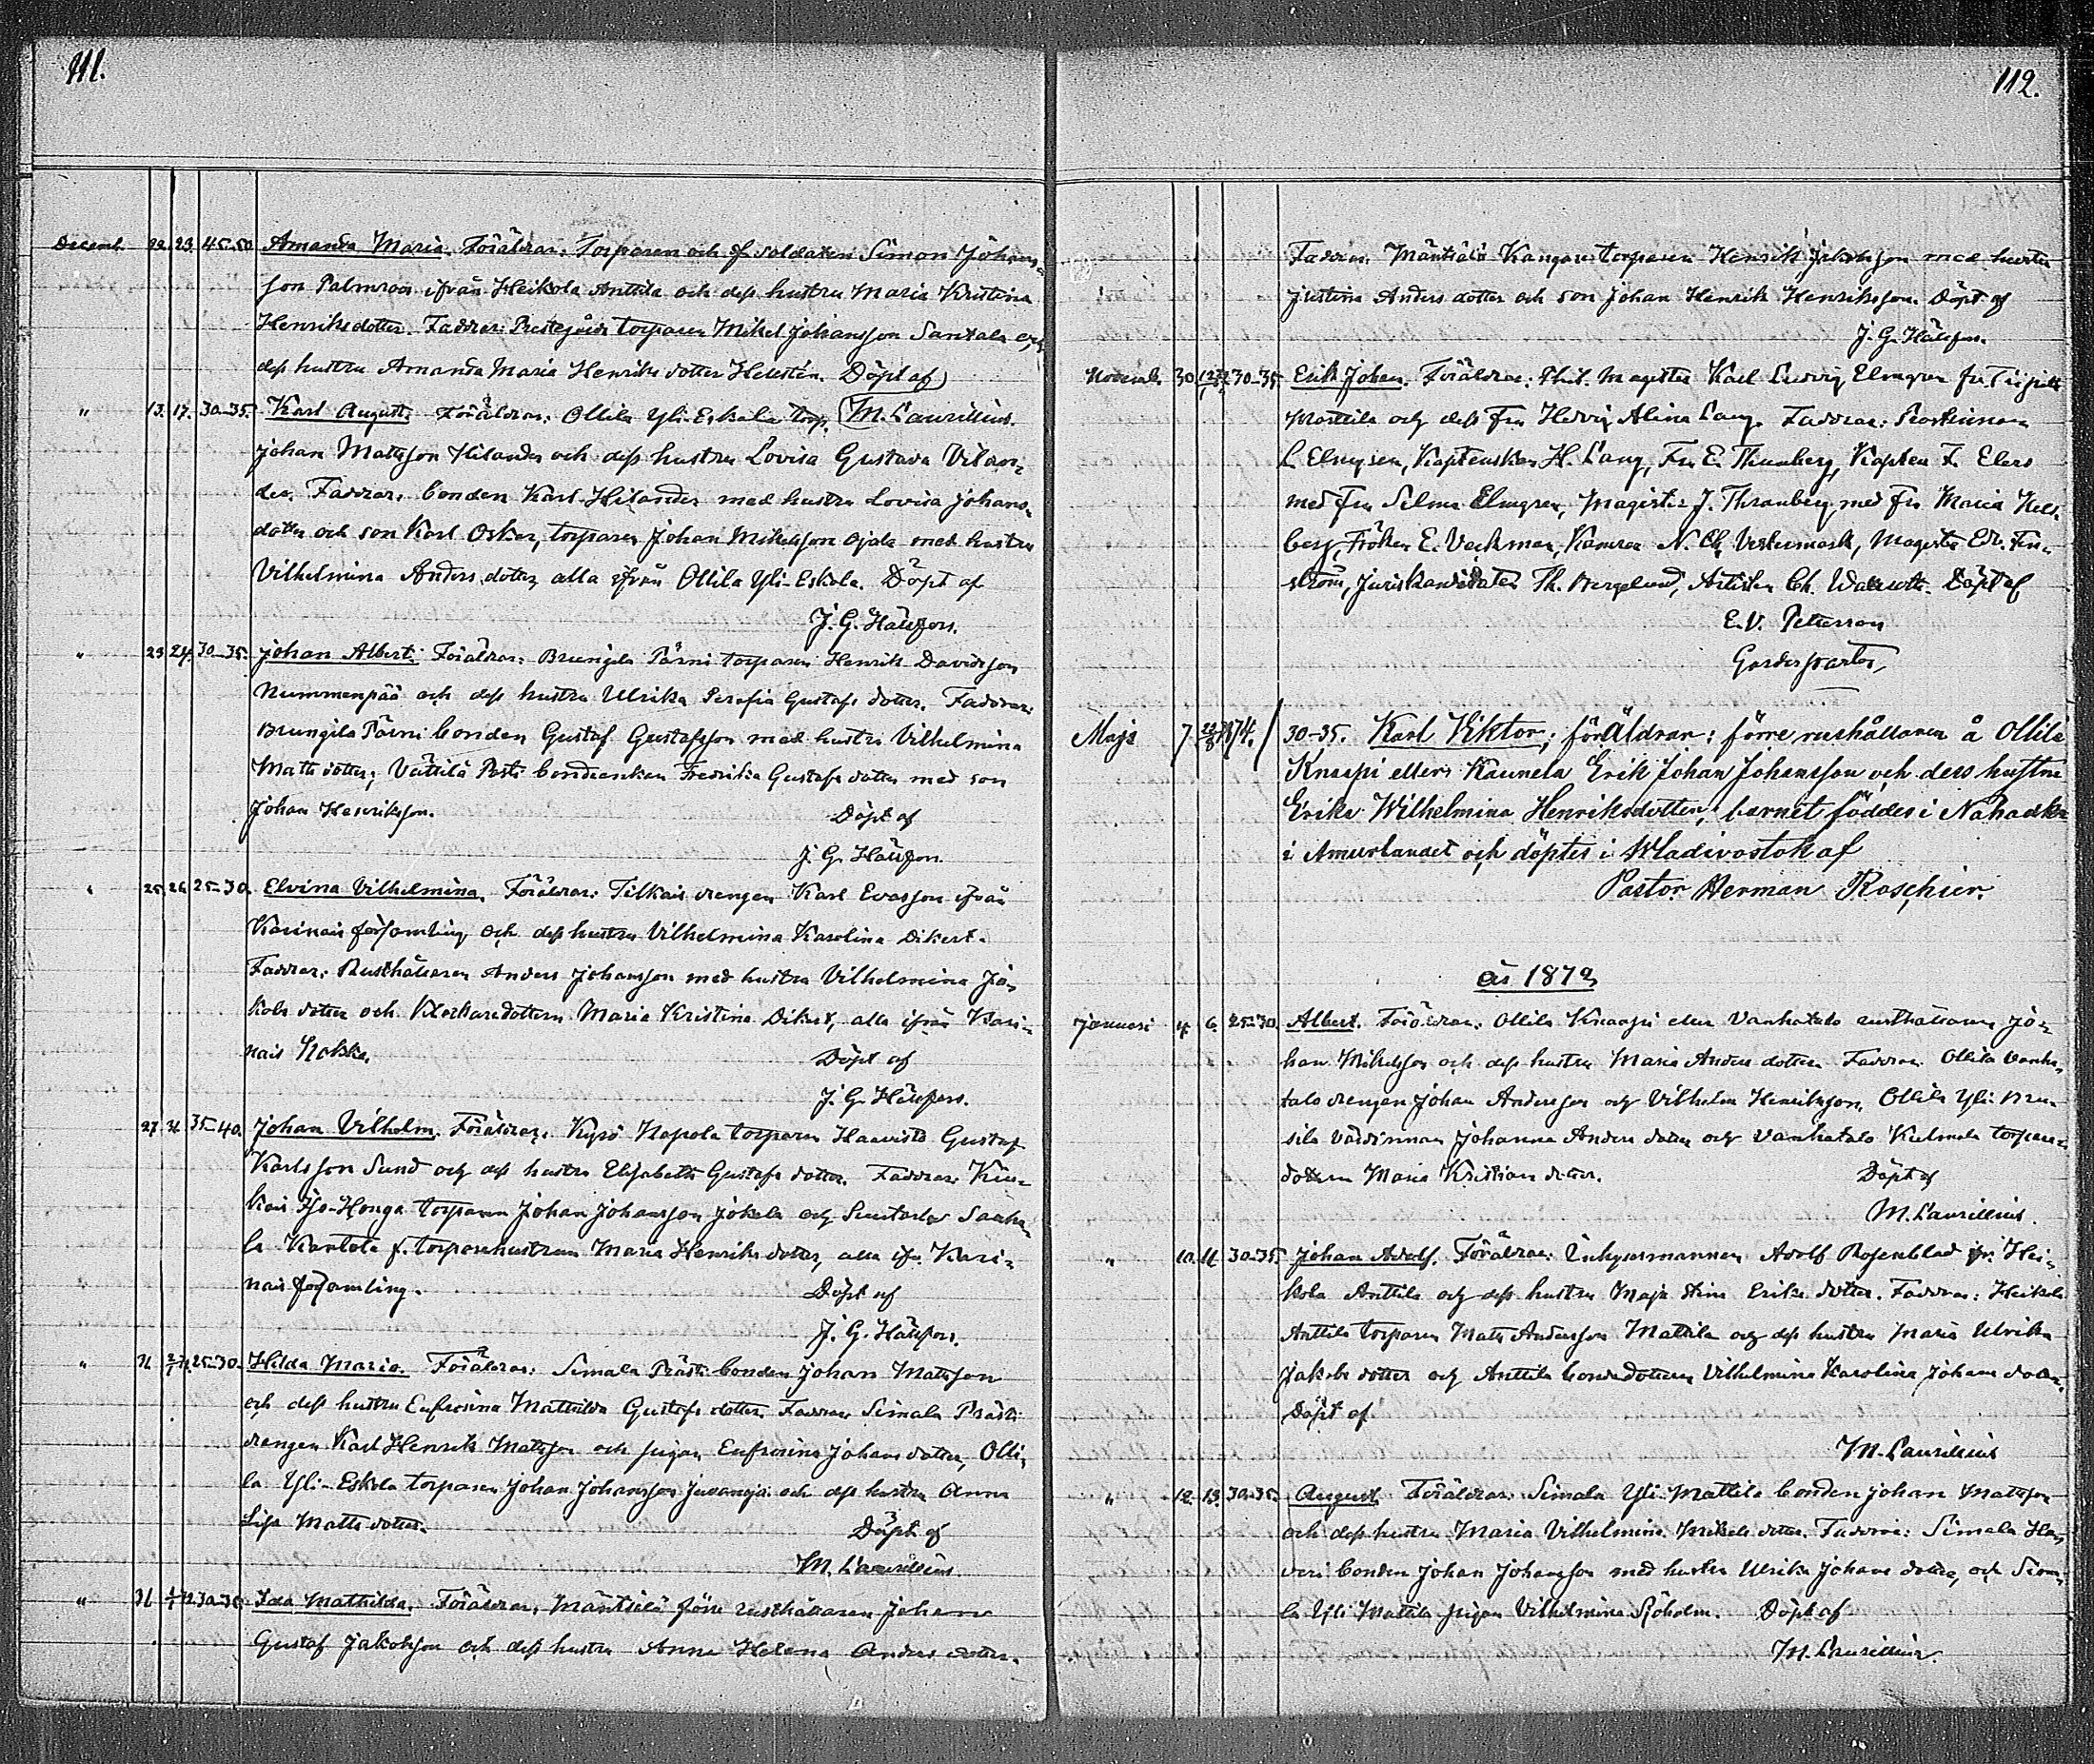 111.
Decemb. 22. 23. 45-50. Amanda Maria. Föräldrar: Torparen och f. soldaten Simon Johans-
son Palmroos ifrån Heikola Anttila och dess hustru Maria Kristina
Henriksdotter. Faddrar: Prestegårds torparen Mikel Johansson Santala och
dess hustru Amanda Maria Henriks dotter Hellstén. Döpt af
" 13. 17. 30-35. Karl August. Föräldrar: Ollila Yli-Eskola torp. M. Laurellius.
Johan Mattsson Hilander och dess hustru Lovisa Gustava Vilan-
der. Faddrar: bonden Karl Hilander med hustru Lovisa Johans-
dotter och son Karl Oskar, torparen Johan Mikelsson Ojala med hustru
Vilhelmina Anders dotter, alla ifrån Ollila Yli-Eskola. Döpt af
J. G. Hällfors.
" 23. 24. 30-35. Johan Albert. Föräldrar: Brungila Pärni torparen Henrik Davidsson
Nummenpää och dess hustru Ulrika Serafia Gustafs dotter. Faddrar:
Brungila Pärni bonden Gustaf Gustafsson med hustru Vilhelmina
Matts dotter; Vättilä Perti bondeenkan Fredrika Gustafs dotter med son
Johan Henriksson. Döpt af
J. G. Hällfors.
" 25. 26. 25-30. Elvina Vilhelmina. Föräldrar: Tilkais drengen Karl Evasson ifrån
Karinais församling och dess hustru Vilhelmina Karolina Dikert.
Faddrar: Rusthållaren Anders Johansson med hustru Vilhelmina Ja-
kobs dotter och Klockaredottern Maria Kristina Dikert, alla ifrån Kari-
nais Kokko. Döpt af
J. G. Hällfors.
27. 31. 35-40. Johan Vilhelm. Föräldrar: Kyrö Napola torparen Haavisto Gustaf
Karlsson Sund och dess hustru Elisabeth Gustafs dotter. Faddrar:
Iso-Honga torparen Johan Johansson Jokela och
Kantola f. torparehustrun Maria Henriks dotter, alla ifr. Kari-
nais församling. Döpt af
J. G. Hällfors.
" 31. 25-30. Hilda Maria. Föräldrar: Simala Prästi bonden Johan Mattsson
och dess hustru Eufrosina Mathilda Gustafs dotter. Faddrar Simala Prästi
drengen Karl Henrik Mattsson och pigan Eufrosina Johans dotter, Olli-
la Yli-Eskola torparen Johan Johansson Juvanoja och dess hustru Anna
Lisa Matts dotter. Döpt af
M. Laurellius.
" 31. 30-35. Ida Mathilda. Föräldrar, Mäntsälä förre rusthållaren Johan
Gustaf Jakobsson och dess hustru Anna Helena Anders dotter.
112.
Faddrar: Mäntsälä Kangare torparen Henrik Jakobsson med hustru
Justina Anders dotter och son Johan Henrik Henriksson. Döpt af
J. G. Hällfors.
Novemb. 30. 30-35. Erik Johan. Föräldrar: Phil. Magister Karl Ludvig Elmgren fr.
Marttila och dess Fru Hedvig Alina Lang. Faddrar: Prostinnan
L. Elmgren, Kaptenskan H. Lang, Fru E. Thunberg, Kapten F. Elers
med fru Selma Elmgren, Magister J. Thranberg med fru Maria Hels-
berg, Fröken E. Veckman, Kamrer N. Ch. Vestermark, Magister Edv. Fin-
ström, Juriskandidaten Th. Bergelund, Artisten Ch. Döpt af
E. V. Petterson
Gardespastor
Maji 7. 1874. 30-35. Karl Viktor; föräldrar: förre rusthållaren å Ollila
Knaapi eller Kaunela Erik Johan Johansson och dess hustru
Erika Wilhelmina Henriksdotter; barnet föddes i Nahodka
i Amurlandet och döptes i Wladivostok af
Pastor Herman Roschier.
år 1872
Januari 4. 6. 25-30. Albert. Föräldrar: Ollila Knaapi eller Vanhatalo rusthållaren Jo-
han Mikelsson och dess hustru Maria Anders dotter. Faddrar Ollila Vanha-
talo drengen Johan Andersson och Vilhelm Henriksson, Ollila Yli
värdinnan Johanna Anders dotter och Vanhatalo Kulmala torpare-
dottern Maria Kristians dotter. Döpt af
M. Laurellius.
" 10. 11. 30-35. Johan Adolf. Föräldrar: Inhysesmannen Adolf Rosenblad ifr. Hei-
kola Anttila och dess hustru Maja Stina Eriks dotter. Faddrar: Heikola
Anttila torparen Matts Andersson Mattila och dess hustru Maria Ulrika
Jakobs dotter och Anttila bondedottern Vilhelmina Karolina Johans dotter.
Döpt af
M. Laurellius
" 12. 13. 30-35. August. Föräldrar: Simala Yli-Mattila bonden Johan Mattsson
och dess hustru Maria Vilhelmina Mikels dotter. Faddrar: Simala Ha-
veri bonden Johan Johansson med hustru Ulrika Johans dotter, och Sima-
la Yli Mattila pigan Vilhelmina Sjöholm. Döpt af
M. Laurellius.